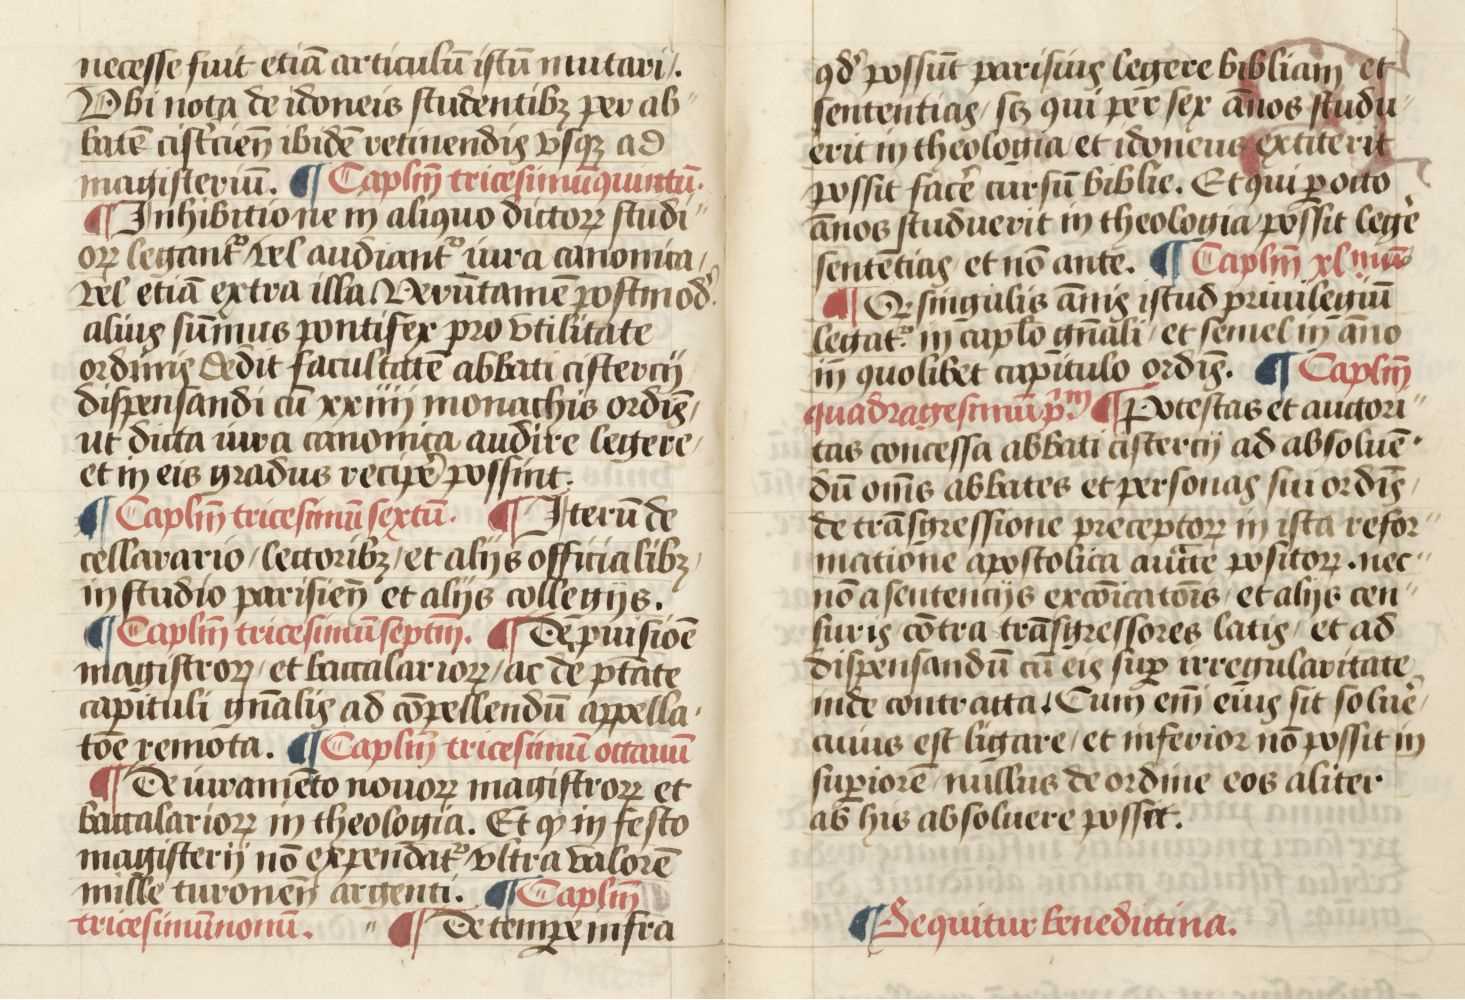 necesse fuit etiā articulū istū mutari/.
Vbi nota de idoneis studentibꝫ per ab"
batē cistˀcieñ ibidē retinendis vsqꝫ ad
magisteriū. ¶ Caplm̄ tricesimūquintū.
¶ Inhibitione in aliquo dictoꝝ studi"
oꝝ legantˀ vel audiantˀ iura canonica/
vel etiā extra illa. Verūtamē postmodˀ
alius sūmus pontifex pro vtilitate
ordinis dedit facultatē abbati cistercij
dispensandi cū xxiiii monachis ordīs/
ut dicta iura canonica audire legere/
et in eis gradus recipeˀ possint.
¶ Caplm̄ tricesimū sextū. ¶ Iterū de
cellarario/lectoribꝫ/et alijs officialibꝫ/
in studio parisieñ et alijs collegijs.
¶ Caplm̄ tricesimū septm̄. ¶ De ꝓuisiōe
magistroꝝ/et baccalarioꝝ/ac de ptāte
capituli gñalis ad cōpellendū appella"
tōe remota. ¶ Caplm̄ tricesimū octauū
¶ De iuramēto nouoꝝ magistroꝝ et
baccalarioꝝ in theologia. Et ꝙ in festo
magisterij nō expendatˀ vltra valorē
mille turoneñ argenti. ¶ Caplm̄
tricesimūnonū. " ¶ De tempe infra
qdˀ possūt parisius legere bibliam et
sententias/ scꝫ qui per sex ānos studu"
erit in theologia/et idoneus extiterit
possit facˀe cursū biblie. Et qui ꝑ octo
ānos studuerit in theologia/possit legeˀ
sentētias/et nō ante. ¶ Caplm̄ xlmū
¶ Qꝙ singulis ānis istud priuilegiū
legatˀ in caplo gñali/et semel in āno
in quolibet capitulo ordīs. ¶ Caplm̄
quadragesimū pˀmˀ ¶ Potestas et auctori"
tas concessa abbati cistercij ad absoluē"
dū om̄s abbates et personas sui ordīs/
de trāsgressione preceptoꝝ in ista refor"
matione apostolica auc̄te positoꝝ. nec"
nō a sentencijs excōicatōis/et alijs cen"
suris/cōtra trāsgressores latis/et ad
dispensandū cū eis sup irregularitate
inde contracta. Cum em̄ eius sit solueˀ/
cuius est ligare/et inferior nō possit in
superiorē/nullus de ordine eos aliter
ab his absoluere possit.
¶ Sequitur benedictina.